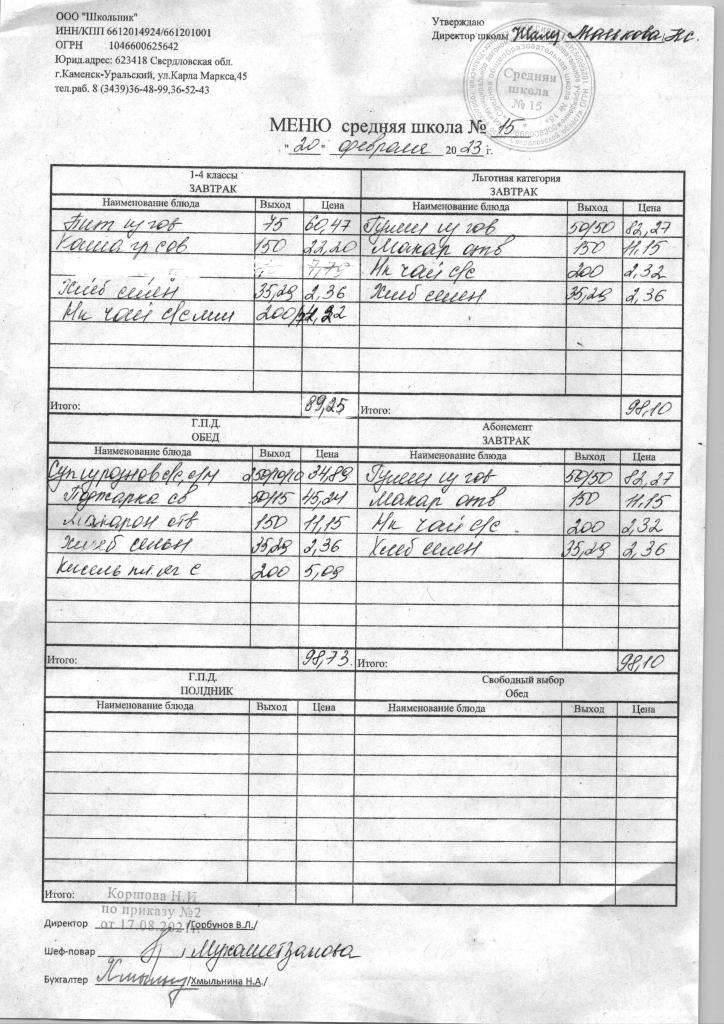 ООО "Школьник"
ИНН/КПП 6612014924/661201001
ОГРН 1046600625642
Юрид.адрес: 623418 Свердловская обл.
г.Каменск-Уральский, ул.Карла Маркса,45
тел.раб. 8 (3439)36-48-99,36-52-43
Утверждаю
Директор школы
Средняя
школа
№ 15
МЕНЮ средняя школа № 15
"20" февраля 2023 г.
1-4 классы Льготная категория
ЗАВТРАК ЗАВТРАК
Наименование блюда Выход Цена Наименование блюда Выход Цена
75 60,47 Гуляш 50/50 82,27
Каша 150 22,20 Макар отв 150 11,15
Нк чай с/с 200 2,32
Хлеб 35,29 2,36 Хлеб 35,29 2,36
Нк чай
Итого: 89,25 Итого: 98,10
Г.П.Д. Абонемент
ОБЕД ЗАВТРАК
Наименование блюда Выход Цена Наименование блюда Выход Цена
Суп 34,89 Гуляш 50/50 82,27
Поджарка св 50/15 45,24 Макар отв 150 11,15
Макарон отв 150 11,15 Нк чай с/с 200 2,32
Хлеб 35,29 2,36 Хлеб 35,29 2,36
Кисель 200 5,09
Итого: 98,73 Итого: 98,10
Г.П.Д. Свободный выбор
ПОЛДНИК Обед
Наименование блюда Выход Цена Наименование блюда Выход Цена
Итого:
Коршова Н.И
по приказу №2
от 17.08.2021г.
Директор /Горбунов В.Л./
Шеф-повар
Бухгалтер /Хмыльнина Н.А./